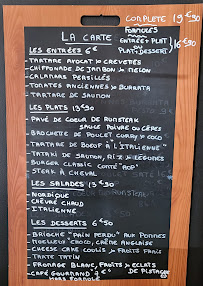 COMPLÈTE 19€90
LA CARTE
FORMULES
ENTRÉE + PLAT
OU
PLAT + DESSERT
16€90
LES ENTRÉES 6€
- TARTARE AVOCAT & CREVETTES
- CHIFFONADE DE JAMBON & MELON
- CALAMARS PERSILLÉS
- TOMATES ANCIENNES & BURRATA
- TARTARE DE SAUMON
LES PLATS 13€90
- PAVÉ DE COEUR DE RUMSTEAK
SAUCE POIVRE OU CÈPES
- BROCHETTE DE POULET CURRY & COCO
- TARTARE DE BOEUF À L'ITALIENNE
- TATAKI DE SAUMON, RIZ & LÉGUMES
- BURGER CLASSIC COMTÉ "AOP"
- STEAK À CHEVAL
LES SALADES 13€90
- NORDIQUE
- CHÈVRE CHAUD
- ITALIENNE
LES DESSERTS 6€50
- BRIOCHE "PAIN PERDU" AUX POMMES
- MOELLEUX CHOCO, CRÈME ANGLAISE
- CHEESE CAKE COULIS & FRUITS FRAIS
- TARTE TATIN
- FROMAGE BLANC, FRUITS & ÉCLATS
DE PISTACHE
- CAFÉ GOURMAND
HORS FORMULE